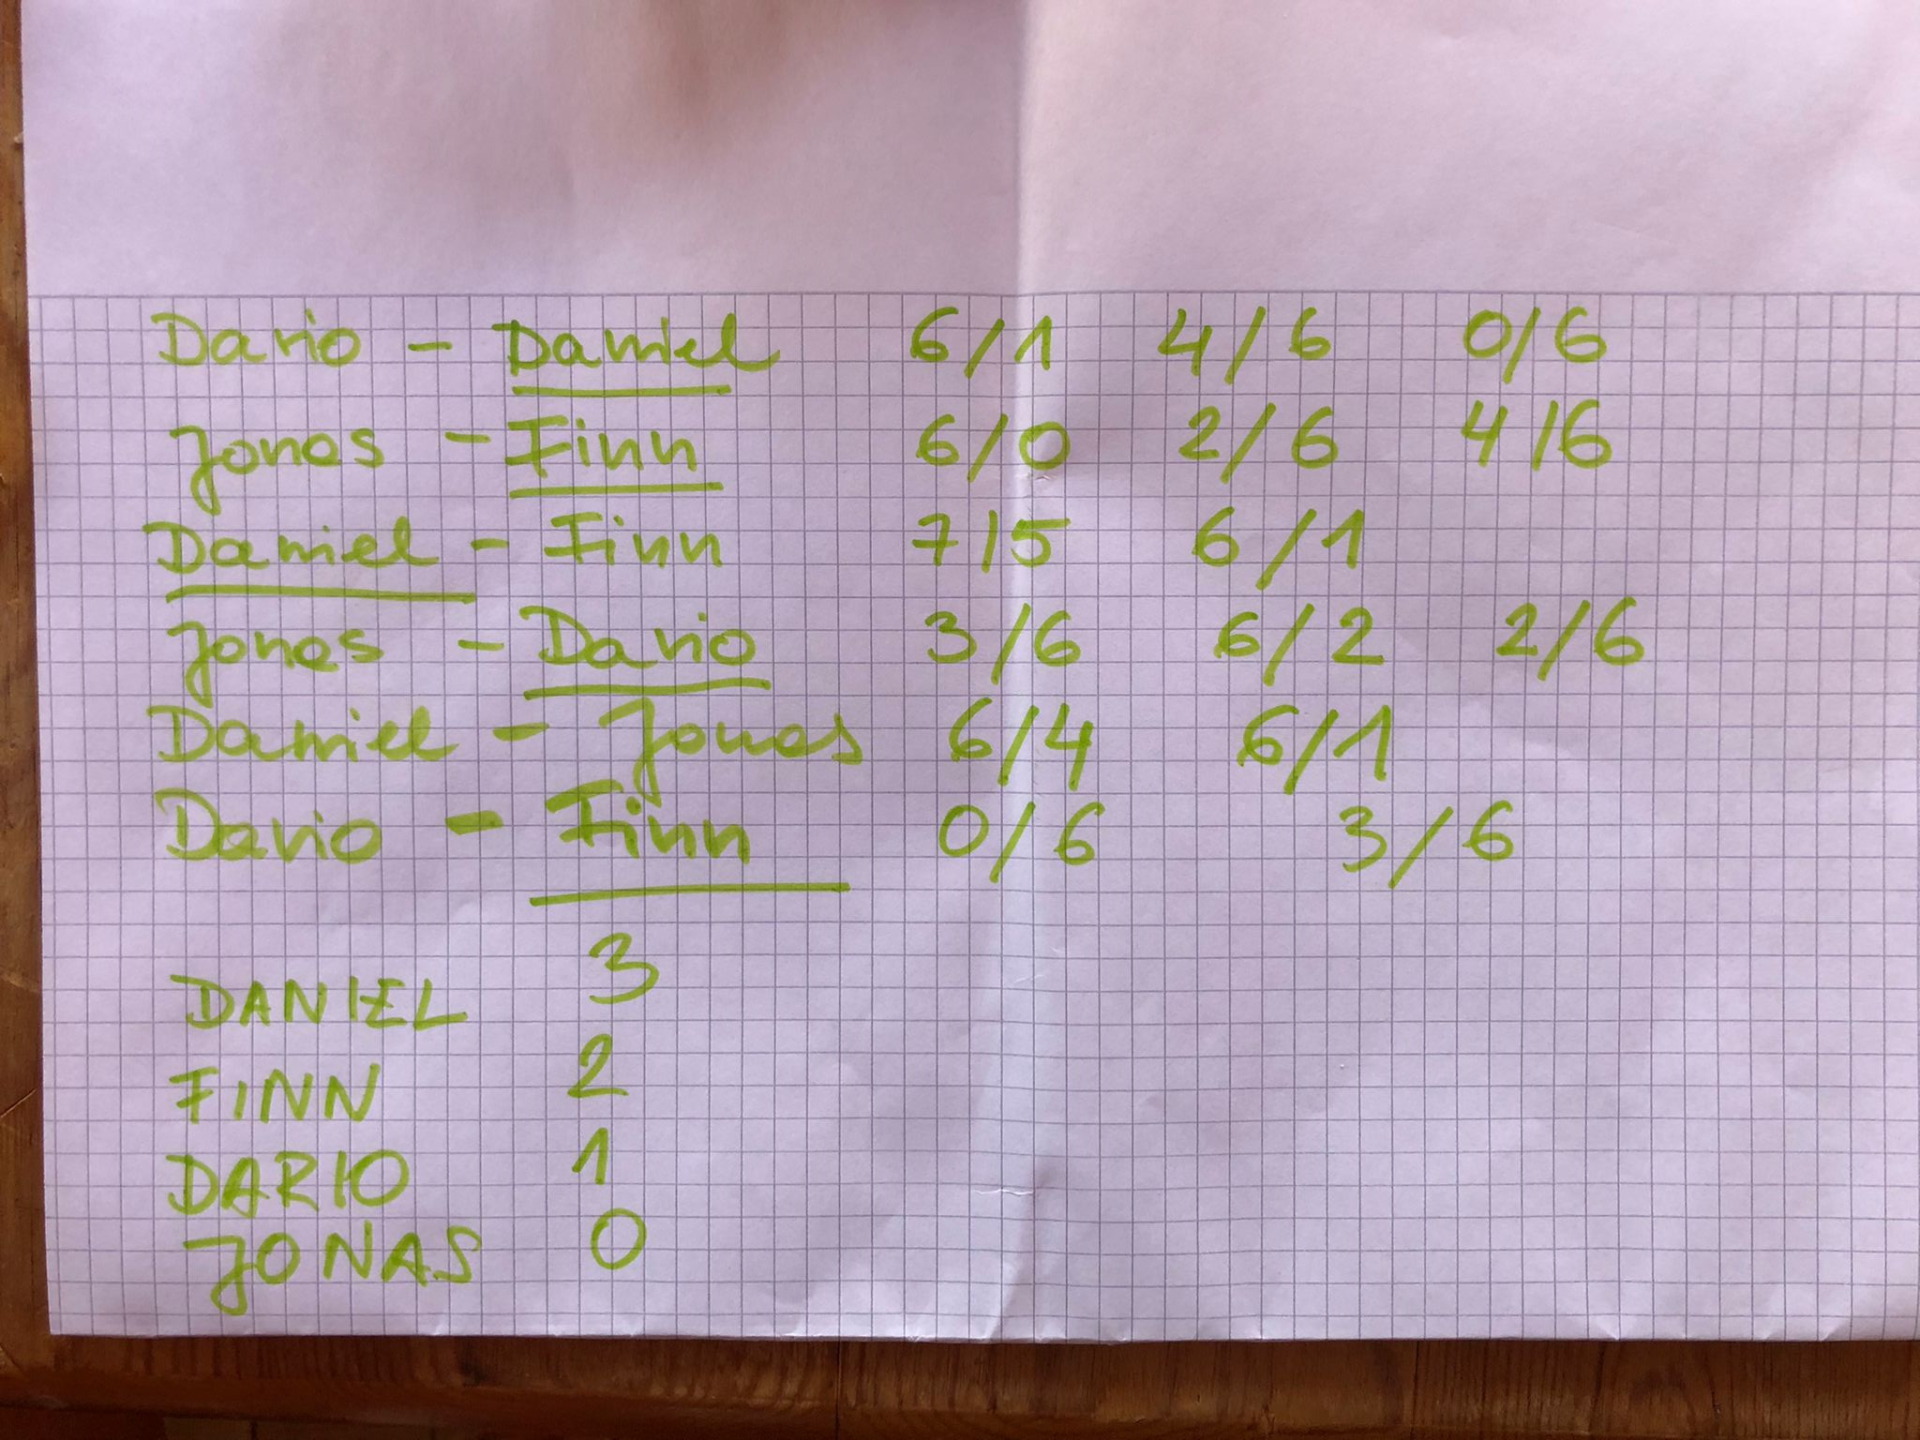 Dario - Daniel 6/1 4/6 0/6
Jonas - Finn 6/0 2/6 4/6
Daniel - Finn 7/5 6/1
Jonas - Dario 3/6 6/2 2/6
Daniel - Jonas 6/4 6/1
Dario - Finn 0/6 3/6
DANIEL 3
FINN 2
DARIO 1
JONAS 0